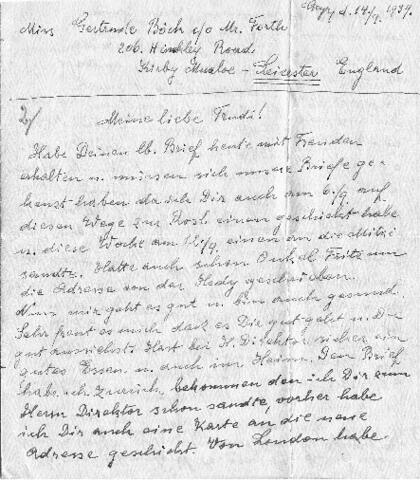 Copy d. 14/9. 1939.
Miss Gertrude Böck c/o Mr. Forth
206. Hinckley Road.
Kirby Muxloe - Leicester England
2/ Meine liebe Trudi!
Habe Deinen lb. Brief heute mit Freuden
erhalten u. müssen sich unsere Briefe ge-
kreuzt haben da ich Dir auch am 6./9. auf
diesen Wege zur Post einen geschickt habe
u. diese Woche am 11./9. einen an die Mitzi
sandte. Hatte auch schon Onkel Fritz um
die Adresse von der Hedy geschrieben.
Nun mir geht es gut u. bin auch gesund.
Sehr freut es mich das es Dir gut geht u. Du
gut aussiehst. Hast bei H. Direktor sicher ein
gutes Essen u. auch im Heim. Den Brief
habe ich zurück bekommen den ich Dir zum
Herrn Direktor schon sandte, vorher habe
ich Dir auch eine Karte an die neue
Adresse geschickt. Von London habe